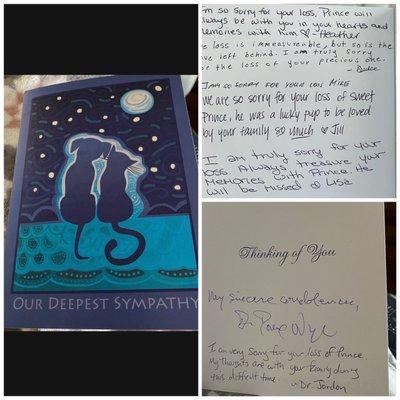 OUR DEEPEST SYMPATHY
I'm so sorry for your loss, Prince will
always be with you in your hearts and
memories with him ♡ - Heather
The loss is immeasureable, but so is the
love left behind. I am truly sorry
for the loss of your precious one.
I AM SO SORRY FOR YOUR LOSS MIKE
We are so sorry for your loss of sweet
Prince, he was a lucky pup to be loved
by your family so much ♡ Jill
I am truly sorry for your
loss. Always treasure your
memories with Prince. He
will be missed Lisa
Thinking of You
My sincere condolences,
Dr.
I am very sorry for your loss of Prince.
My thoughts are with your family during
this difficult time. - Dr. Jordon